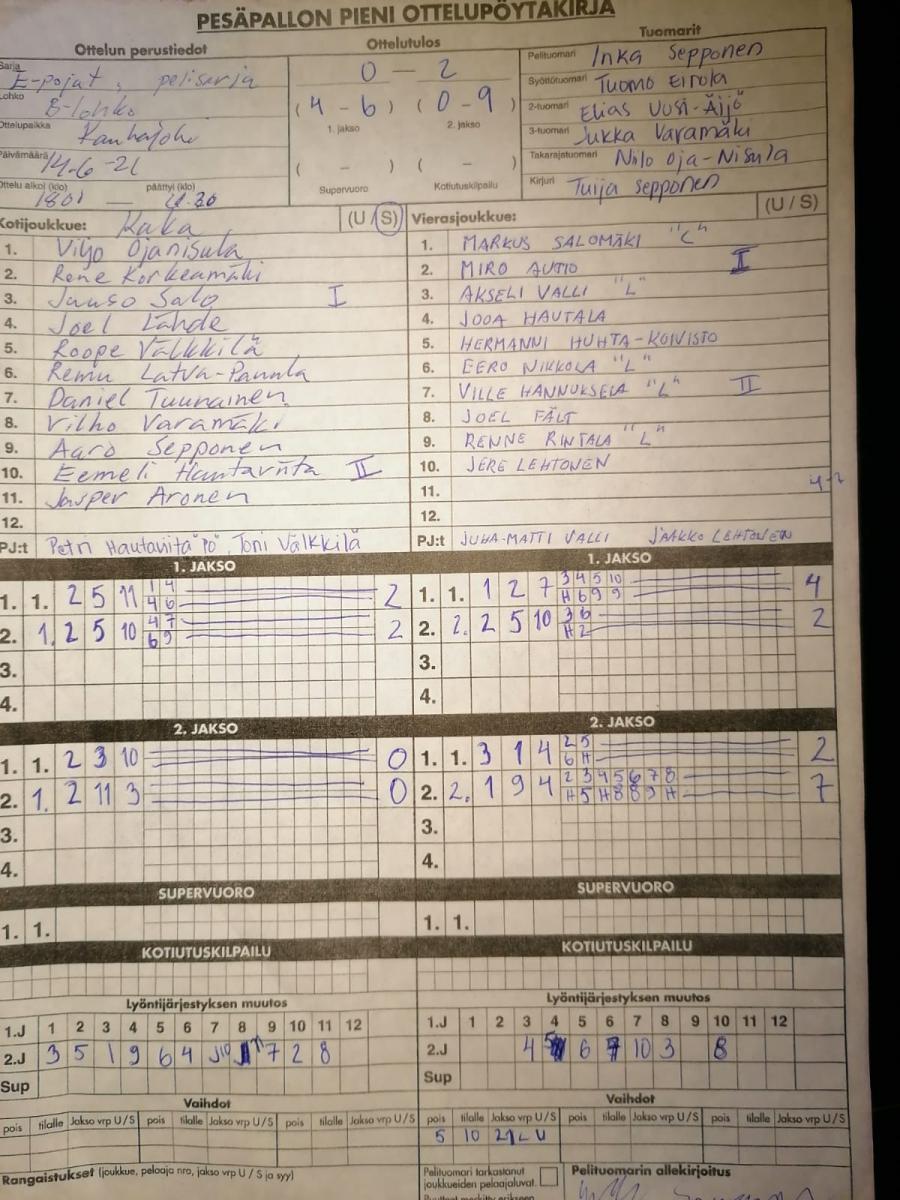 PESÄPALLON PIENI OTTELUPÖYTÄKIRJA
Ottelun perustiedot
Sarja E-pojat, pelisarja
Lohko B-lohko
Ottelupaikka Kauhajoki
Päivämäärä 14-6-21
Ottelu alkoi (klo) päättyi (klo)
1801 —
Ottelutulos
0 — 2
(4 - 6) (0 - 9)
1. jakso 2. jakso
( - ) ( - )
Supervuoro Kotiutuskilpailu
Tuomarit
Pelituomari Inka Sepponen
Syöttötuomari Tuomo Eirola
2-tuomari Elias Uusi-Äijö
3-tuomari Jukka Varamäki
Takarajatuomari Niilo Oja-Nisula
Kirjuri Tuija Sepponen
Kotijoukkue: KaKa (U/S)
1. Viljo Ojanisula
2. Rene Korkeamäki
3. Juuso Salo I
4. Joel Lähde
5. Roope Välkkilä
6. Remu Latva-Pannula
7. Daniel Tuunainen
8. Vilho Varamäki
9. Aaro Sepponen
10. Eemeli Hautaviita II
11. Jasper Aronen
12.
PJ:t Petri Hautaviita "PÖ", Toni Välkkilä
Vierasjoukkue: (U / S)
1. MARKUS SALOMÄKI "C"
2. MIRO AUTIO I
3. AKSELI VALLI "L"
4. JOOA HAUTALA
5. HERMANNI HUHTA-KOIVISTO
6. EERO NIKKOLA "L"
7. VILLE HANNUKSELA "L" II
8. JOEL FÄLT
9. RENNE RINTALA "L"
10. JERE LEHTONEN
11.
12.
PJ:t JUHA-MATTI VALLI JAAKKO LEHTONEN
1. JAKSO
1. 1. 2 5 11 1 4 2
4 6
2. 1. 2 5 10 4 7 2
6 9
3.
4.
1. JAKSO
1. 1. 1 2 7 3 4 5 10 4
H 6 9 9
2. 2. 2 5 10 3 6 2
H 2
3.
4.
2. JAKSO
1. 1. 2 3 10 0
2. 1. 2 11 3 0
3.
4.
2. JAKSO
1. 1. 3 1 4 2 5 2
6 H
2. 2. 1 9 4 2 3 4 5 6 7 8 7
H 5 H 8 8 9 H
3.
4.
SUPERVUORO
1. 1.
SUPERVUORO
1. 1.
KOTIUTUSKILPAILU
KOTIUTUSKILPAILU
Lyöntijärjestyksen muutos
1.J 1 2 3 4 5 6 7 8 9 10 11 12
2.J 3 5 1 9 6 4 10 11 7 2 8
Sup
Lyöntijärjestyksen muutos
1.J 1 2 3 4 5 6 7 8 9 10 11 12
2.J 4 5 6 10 3 8
Sup
Vaihdot
pois tilalle Jakso vrp U/S pois tilalle Jakso vrp U/S pois tilalle Jakso vrp U/S
Vaihdot
pois tilalle Jakso vrp U/S pois tilalle Jakso vrp U/S pois tilalle Jakso vrp U/S
5 10 U
Rangaistukset (joukkue, pelaaja nro, jakso vrp U / S ja syy)
Pelituomari tarkastanut
joukkueiden pelaajaluvat.
Pelituomarin allekirjoitus